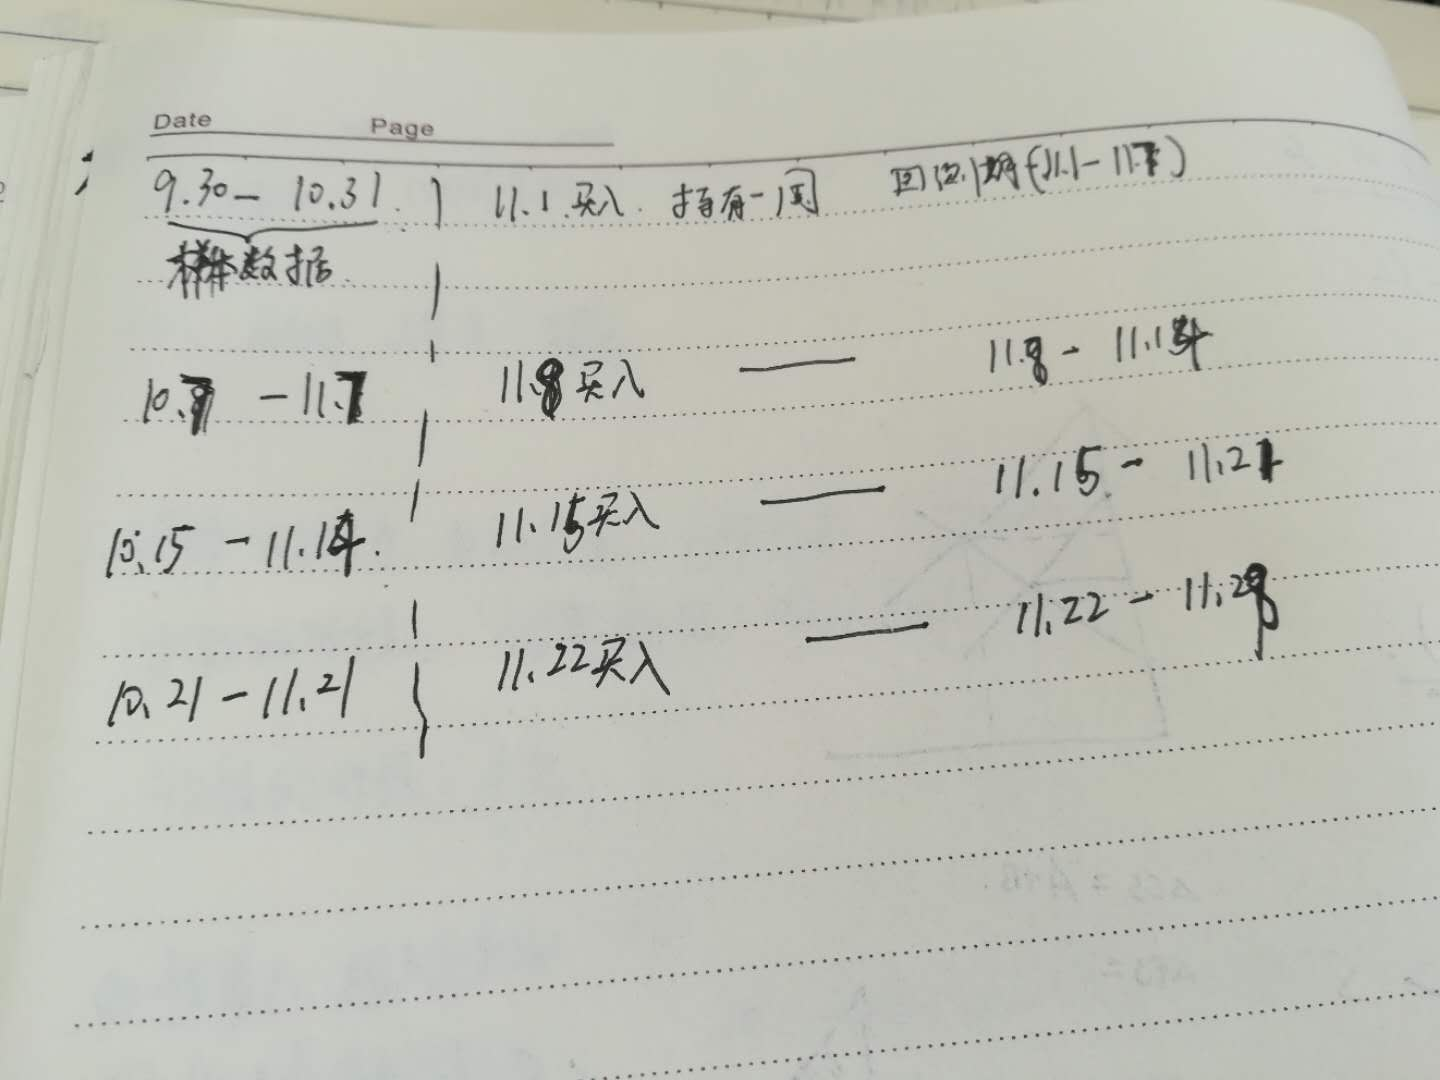 Date Page
9.30 - 10.31. 11.1.买入. 持有一周 回测期(11.1-11.7)
样本数据.
10.7 - 11.7 11.8买入 — 11.8 - 11.14
10.15 - 11.14. 11.15买入 — 11.15 - 11.21
10.21 - 11.21 11.22买入 — 11.22 - 11.28